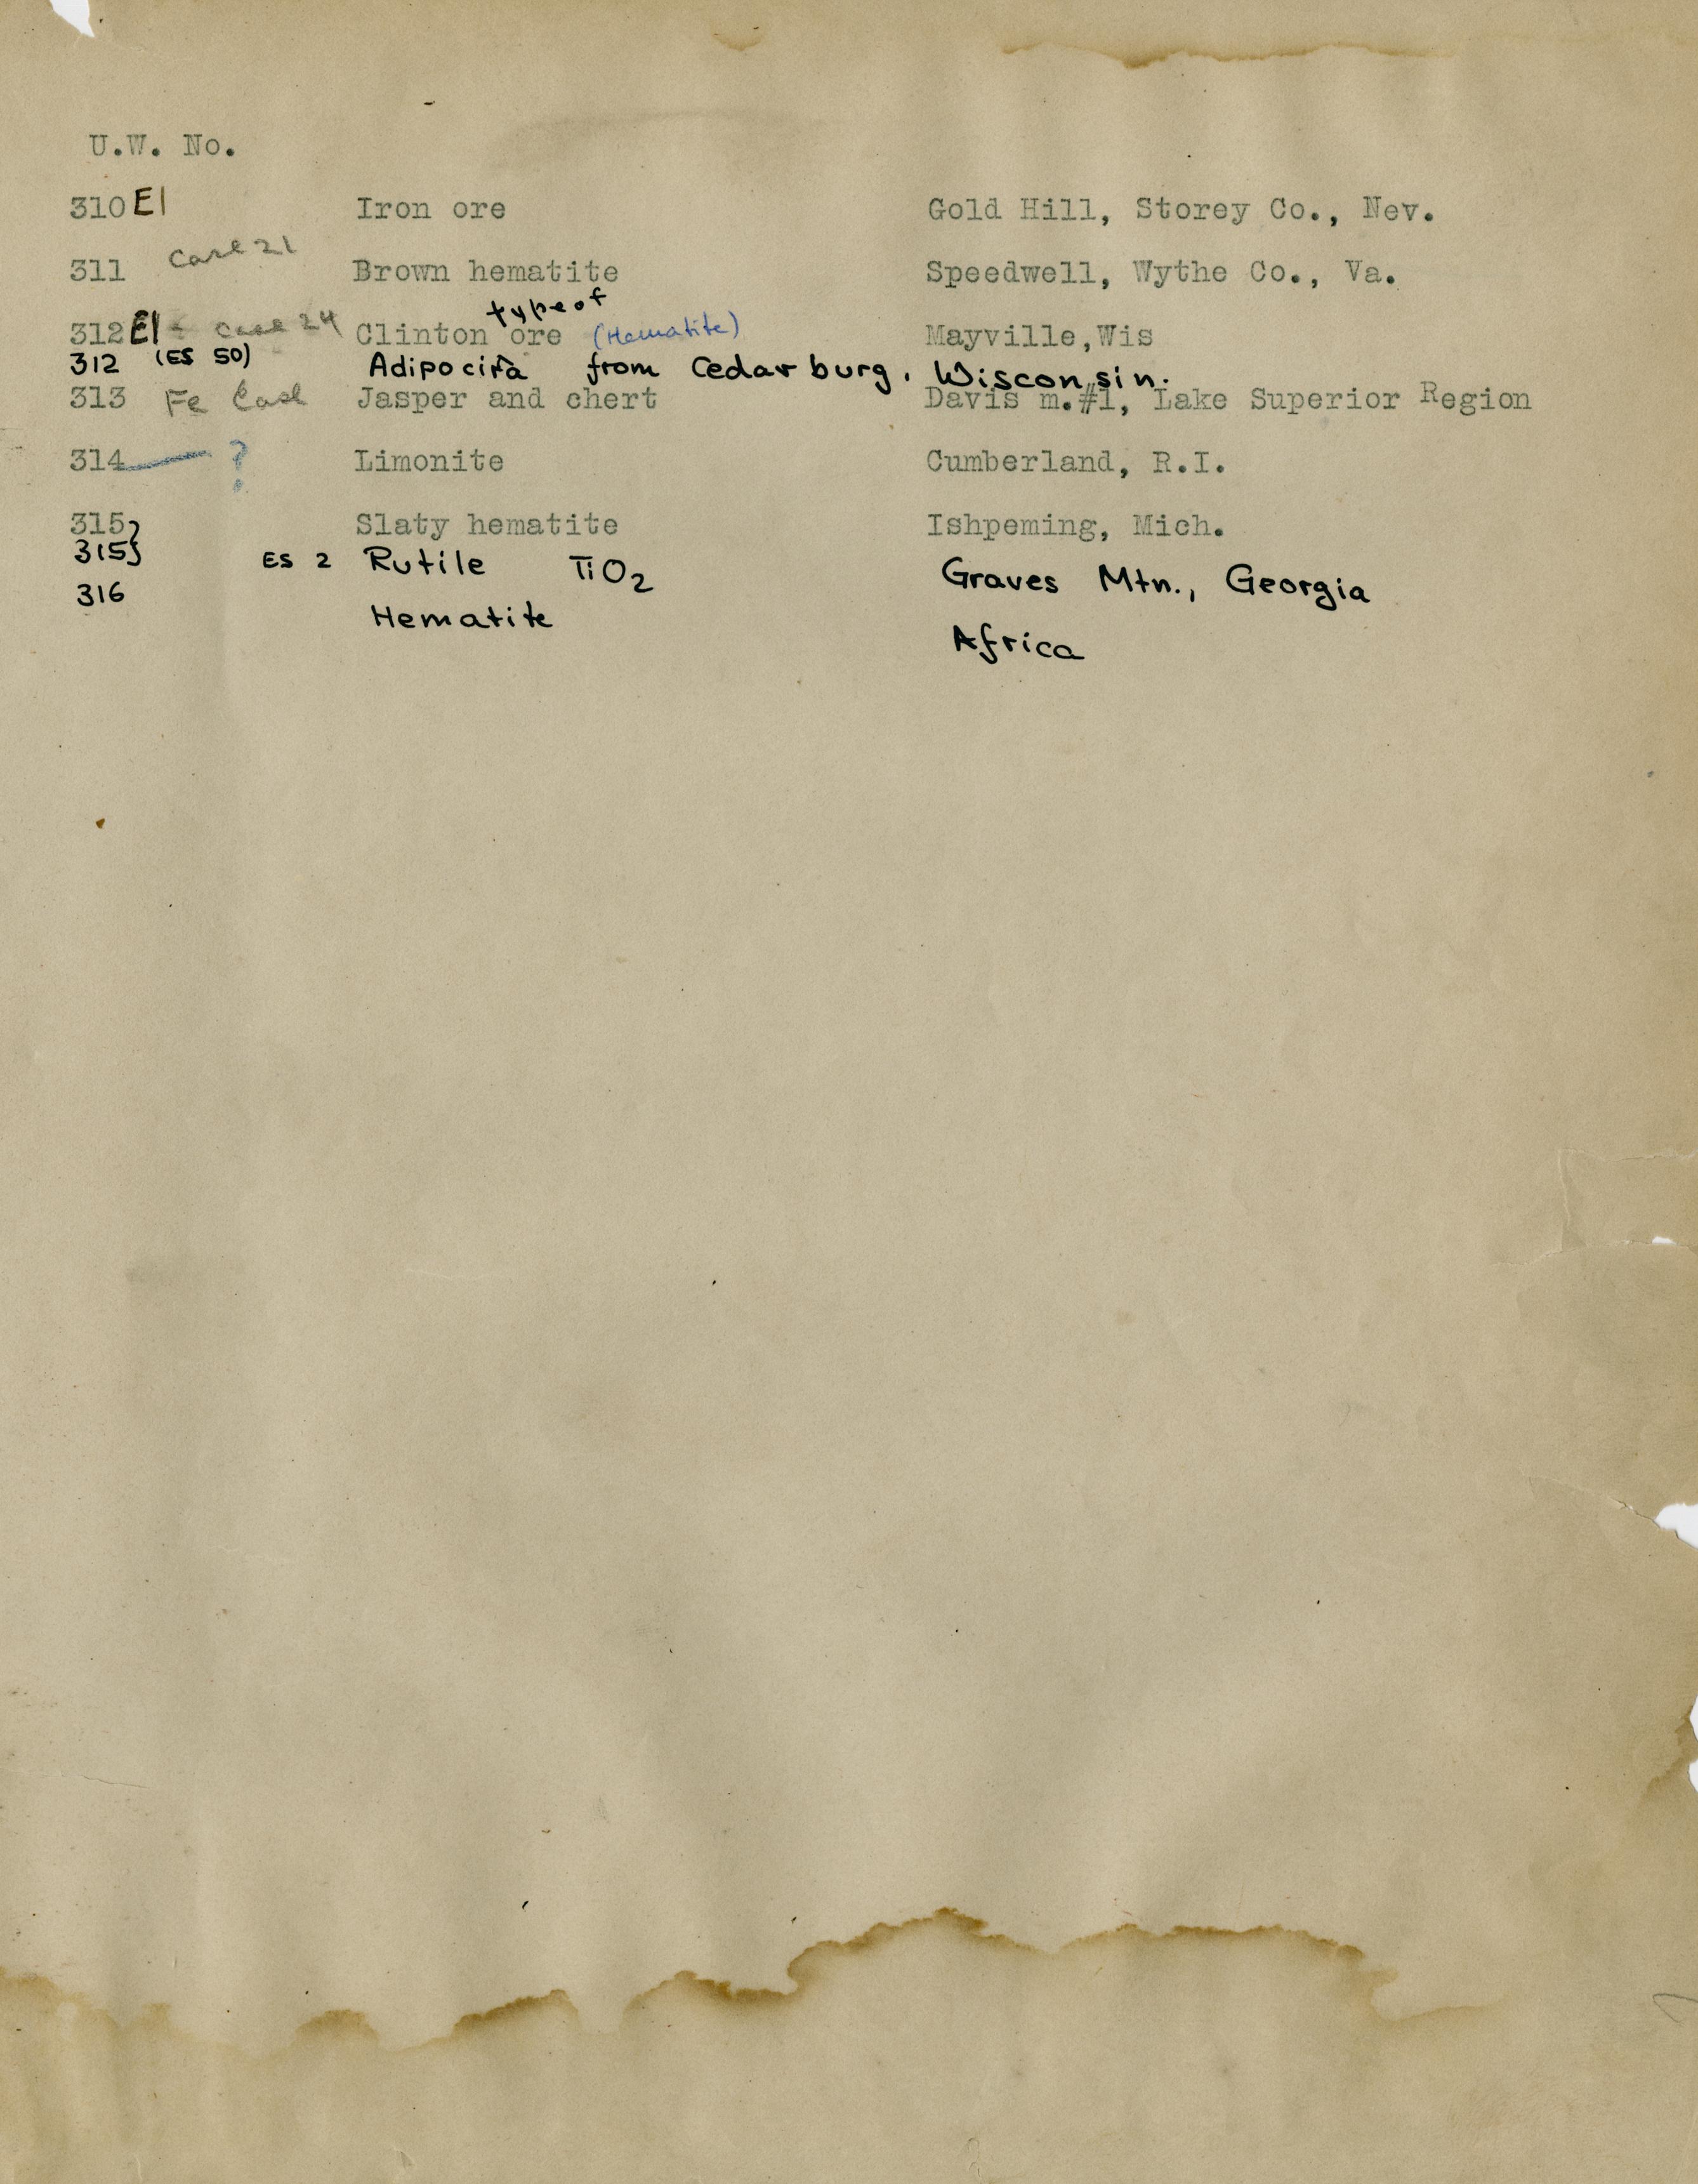 U.W. No.
310 E1 Iron ore Gold Hill, Storey Co., Nev.
Case 21
311 Brown hematite Speedwell, Wythe Co., Va.
type of
312 E1 - Case 24 Clinton ore (Hematite) Mayville,Wis
312 (ES 50) Adipocira from Cedarburg. Wisconsin.
313 Fe Case Jasper and chert Davis m.#1, Lake Superior Region
314 — ? Limonite Cumberland, R.I.
315} Slaty hematite Ishpeming, Mich.
315} ES 2 Rutile TiO2 Graves Mtn., Georgia
316 Hematite Africa